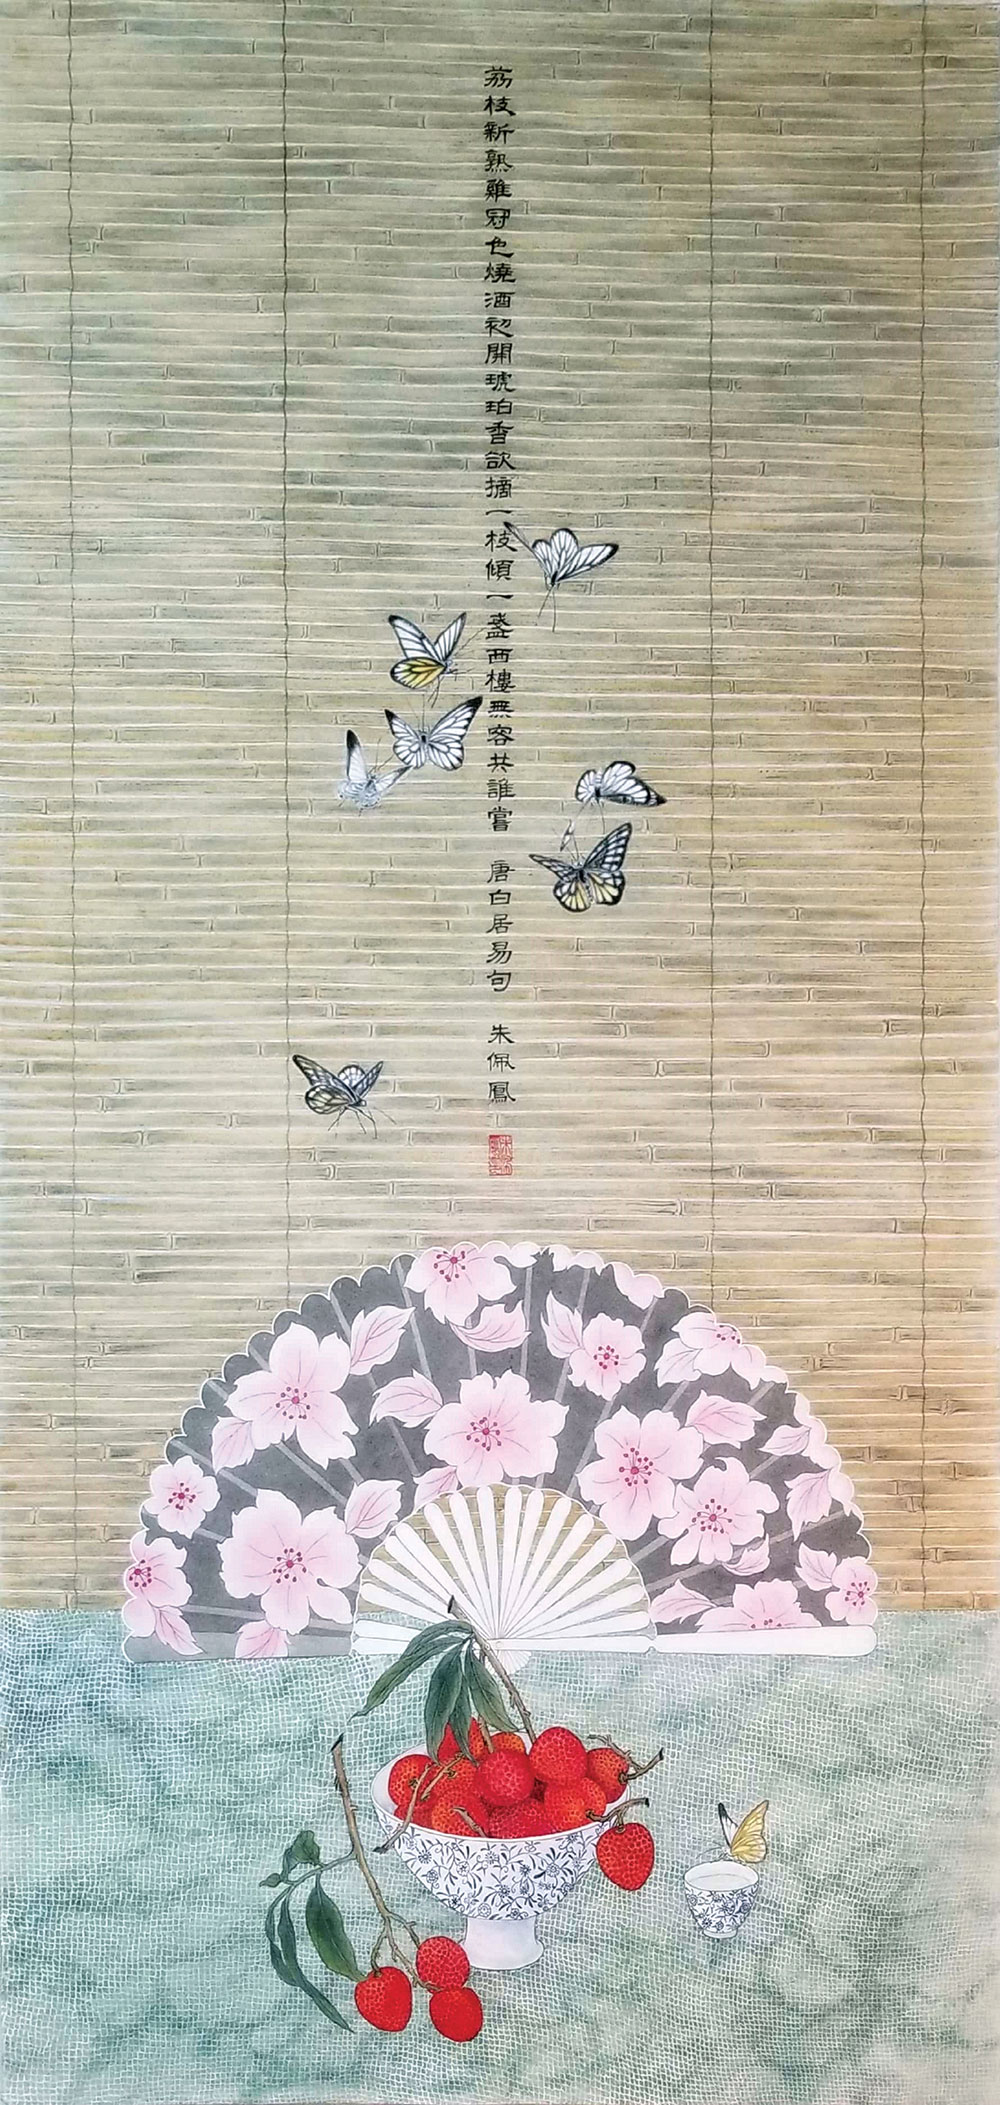 荔枝新熟雞冠色燒酒初開琥珀香欲摘一枝傾一盞西樓無客共誰嘗 唐白居易句 朱佩鳳